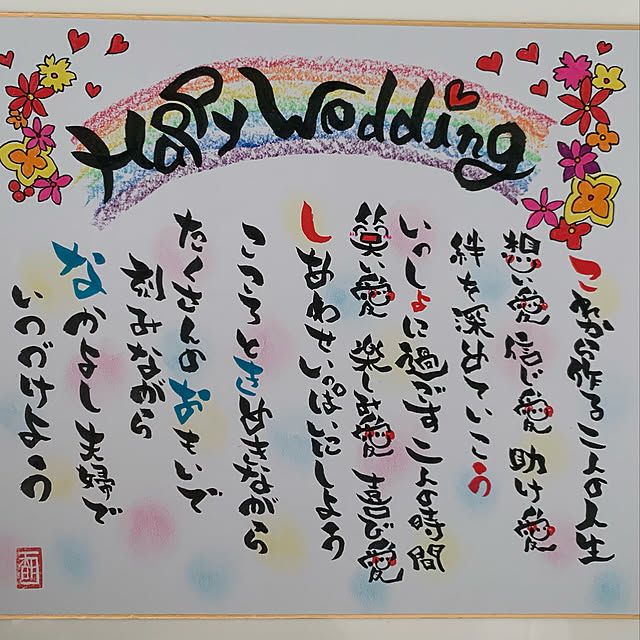 Happy Wedding
これから作る二人の人生
想い愛 信じ愛 助け愛
絆を深めていこう
いっしょに過ごす二人の時間
笑い愛 楽しみ愛 喜び愛
しあわせいっぱいにしよう
こころときめきながら
たくさんのおもいで
刻みながら
なかよし夫婦で
いつづけよう